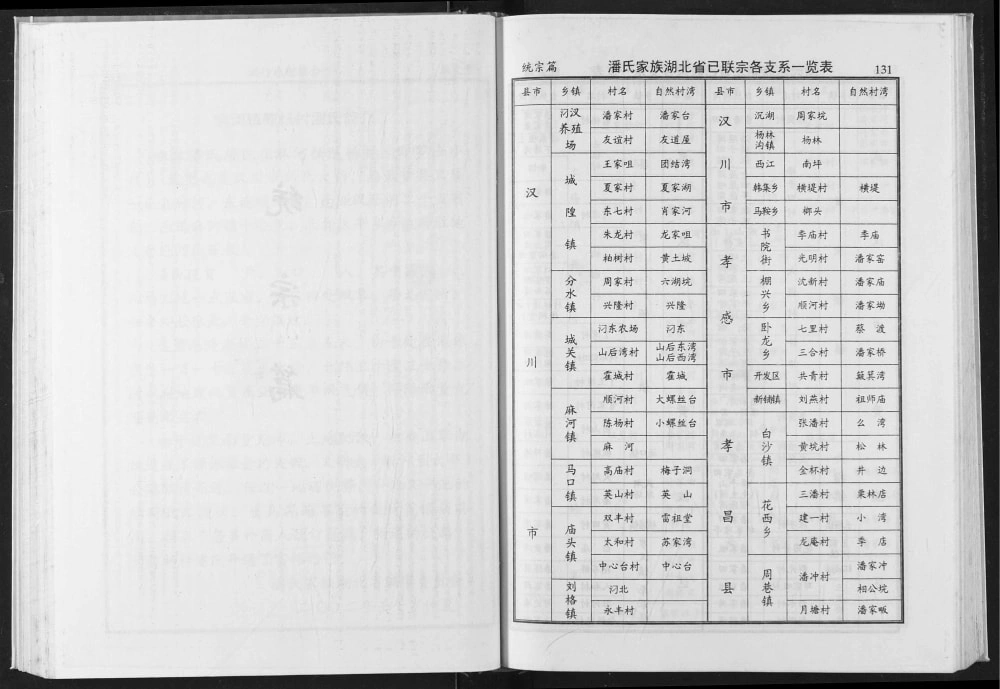 统宗篇 潘氏家族湖北省已联宗各支系一览表 131
县市 乡镇 村名 自然村湾 县市 乡镇 村名 自然村湾
汉川市 汈汊养殖场 潘家村 潘家台 汉川市 沉湖 周家垸
友谊村 友道屋 杨林沟镇 杨林
城隍镇 王家咀 团结湾 西江 南坪
夏家村 夏家湖 韩集乡 横堤村 横堤
东七村 肖家河 马鞍乡 榔头
朱龙村 龙家咀 孝感市 书院街 李庙村 李庙
柏树村 黄土坡 光明村 潘家窑
分水镇 周家村 六湖垸 棚兴乡 沈新村 潘家庙
兴隆村 兴隆 顺河村 潘家坳
城关镇 汈东农场 汈东 卧龙乡 七里村 蔡波
山后湾村 山后东湾 山后西湾 三合村 潘家桥
霍城村 霍城 开发区 共青村 簸箕湾
麻河镇 顺河村 大螺丝台 新铺镇 刘燕村 祖师庙
陈杨村 小螺丝台 孝昌县 白沙镇 张潘村 么湾
麻河 黄垸村 松林
马口镇 高庙村 梅子洞 金杯村 井边
英山村 英山 花西乡 三潘村 栗林店
庙头镇 双丰村 雷祖堂 建一村 小湾
太和村 苏家湾 龙庵村 李店
中心台村 中心台 周巷镇 潘冲村 潘家冲
刘格镇 汈北 相公垸
永丰村 月塘村 潘家畈